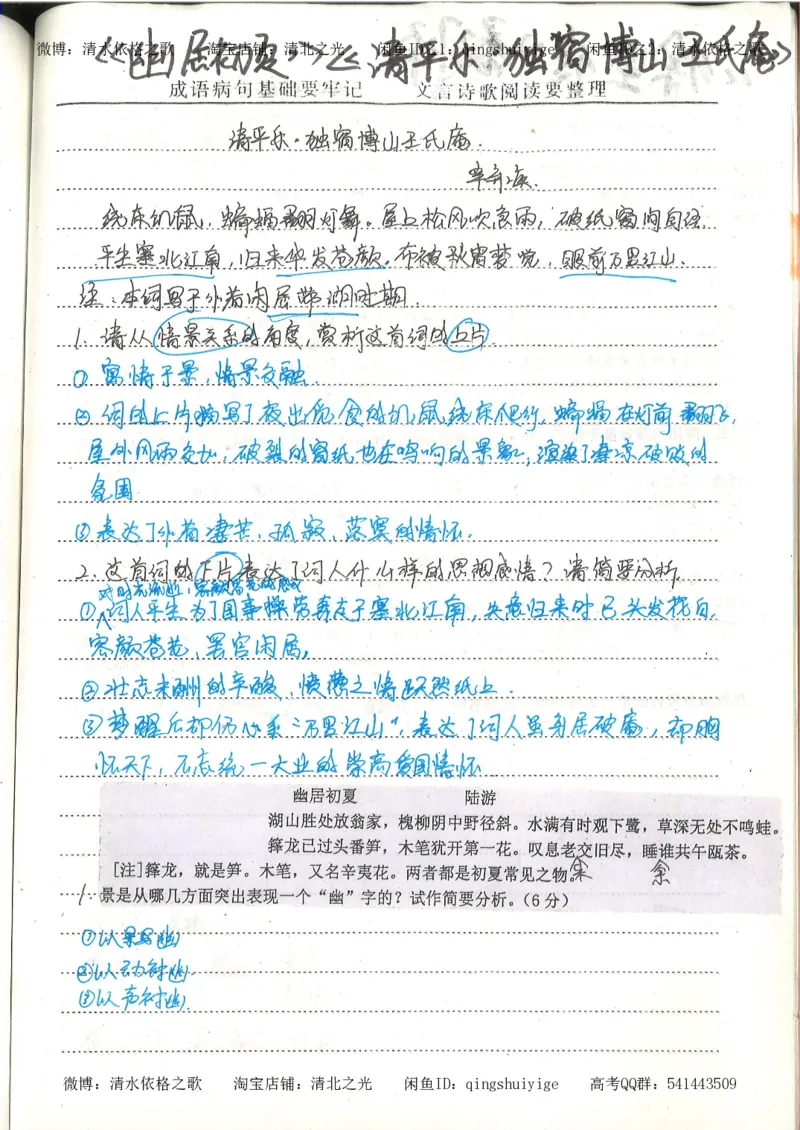 微博：清水依格之歌 淘宝店铺：清北之光 闲鱼ID1：qingshuiyige 闲鱼ID2：清水依格之歌
《幽居初夏》《清平乐 独宿博山王氏庵》
成语病句基础要牢记 文言诗歌阅读要整理
清平乐·独宿博山王氏庵.
辛弃疾.
绕床饥鼠，蝙蝠翻灯舞。屋上松风吹急雨，破纸窗间自语.
平生塞北江南，归来华发苍颜。布被秋宵梦觉，眼前万里江山.
注：本词写于作者闲居带湖时期.
1. 请从情景关系的角度，赏析这首词的上片.
① 寓情于景，情景交融.
② 词的上片描写了夜出觅食的饥鼠绕床爬行，蝙蝠在灯前翻飞，
屋外风雨交加，破裂的窗纸也在鸣响的景象，渲染了凄凉破败的
氛围
③ 表达了作者凄苦、孤寂、落寞的情怀.
2. 这首词的下片表达了词人什么样的思想感情？请简要分析
对时光流逝，容颜
①词人平生为了国事操劳奔走于塞北江南，失意归来时已头发花白，
容颜苍老，罢官闲居，
② 壮志未酬的辛酸、愤懑之情跃然纸上.
③ 梦醒后却仍心系“万里江山”，表达了词人虽身居破庵，却胸
怀天下，不忘统一大业的崇高爱国情怀
幽居初夏 陆游
湖山胜处放翁家，槐柳阴中野径斜。水满有时观下鹭，草深无处不鸣蛙。
箨龙已过头番笋，木笔犹开第一花。叹息老交旧尽，睡谁共午瓯茶。
[注]箨龙，就是笋。木笔，又名辛夷花。两者都是初夏常见之物 余 余
1. 景是从哪几方面突出表现一个“幽”字的？试作简要分析。（6分）
①以景写幽
②以动衬幽.
③以声衬幽.
微博：清水依格之歌 淘宝店铺：清北之光 闲鱼ID：qingshuiyige 高考QQ群：541443509